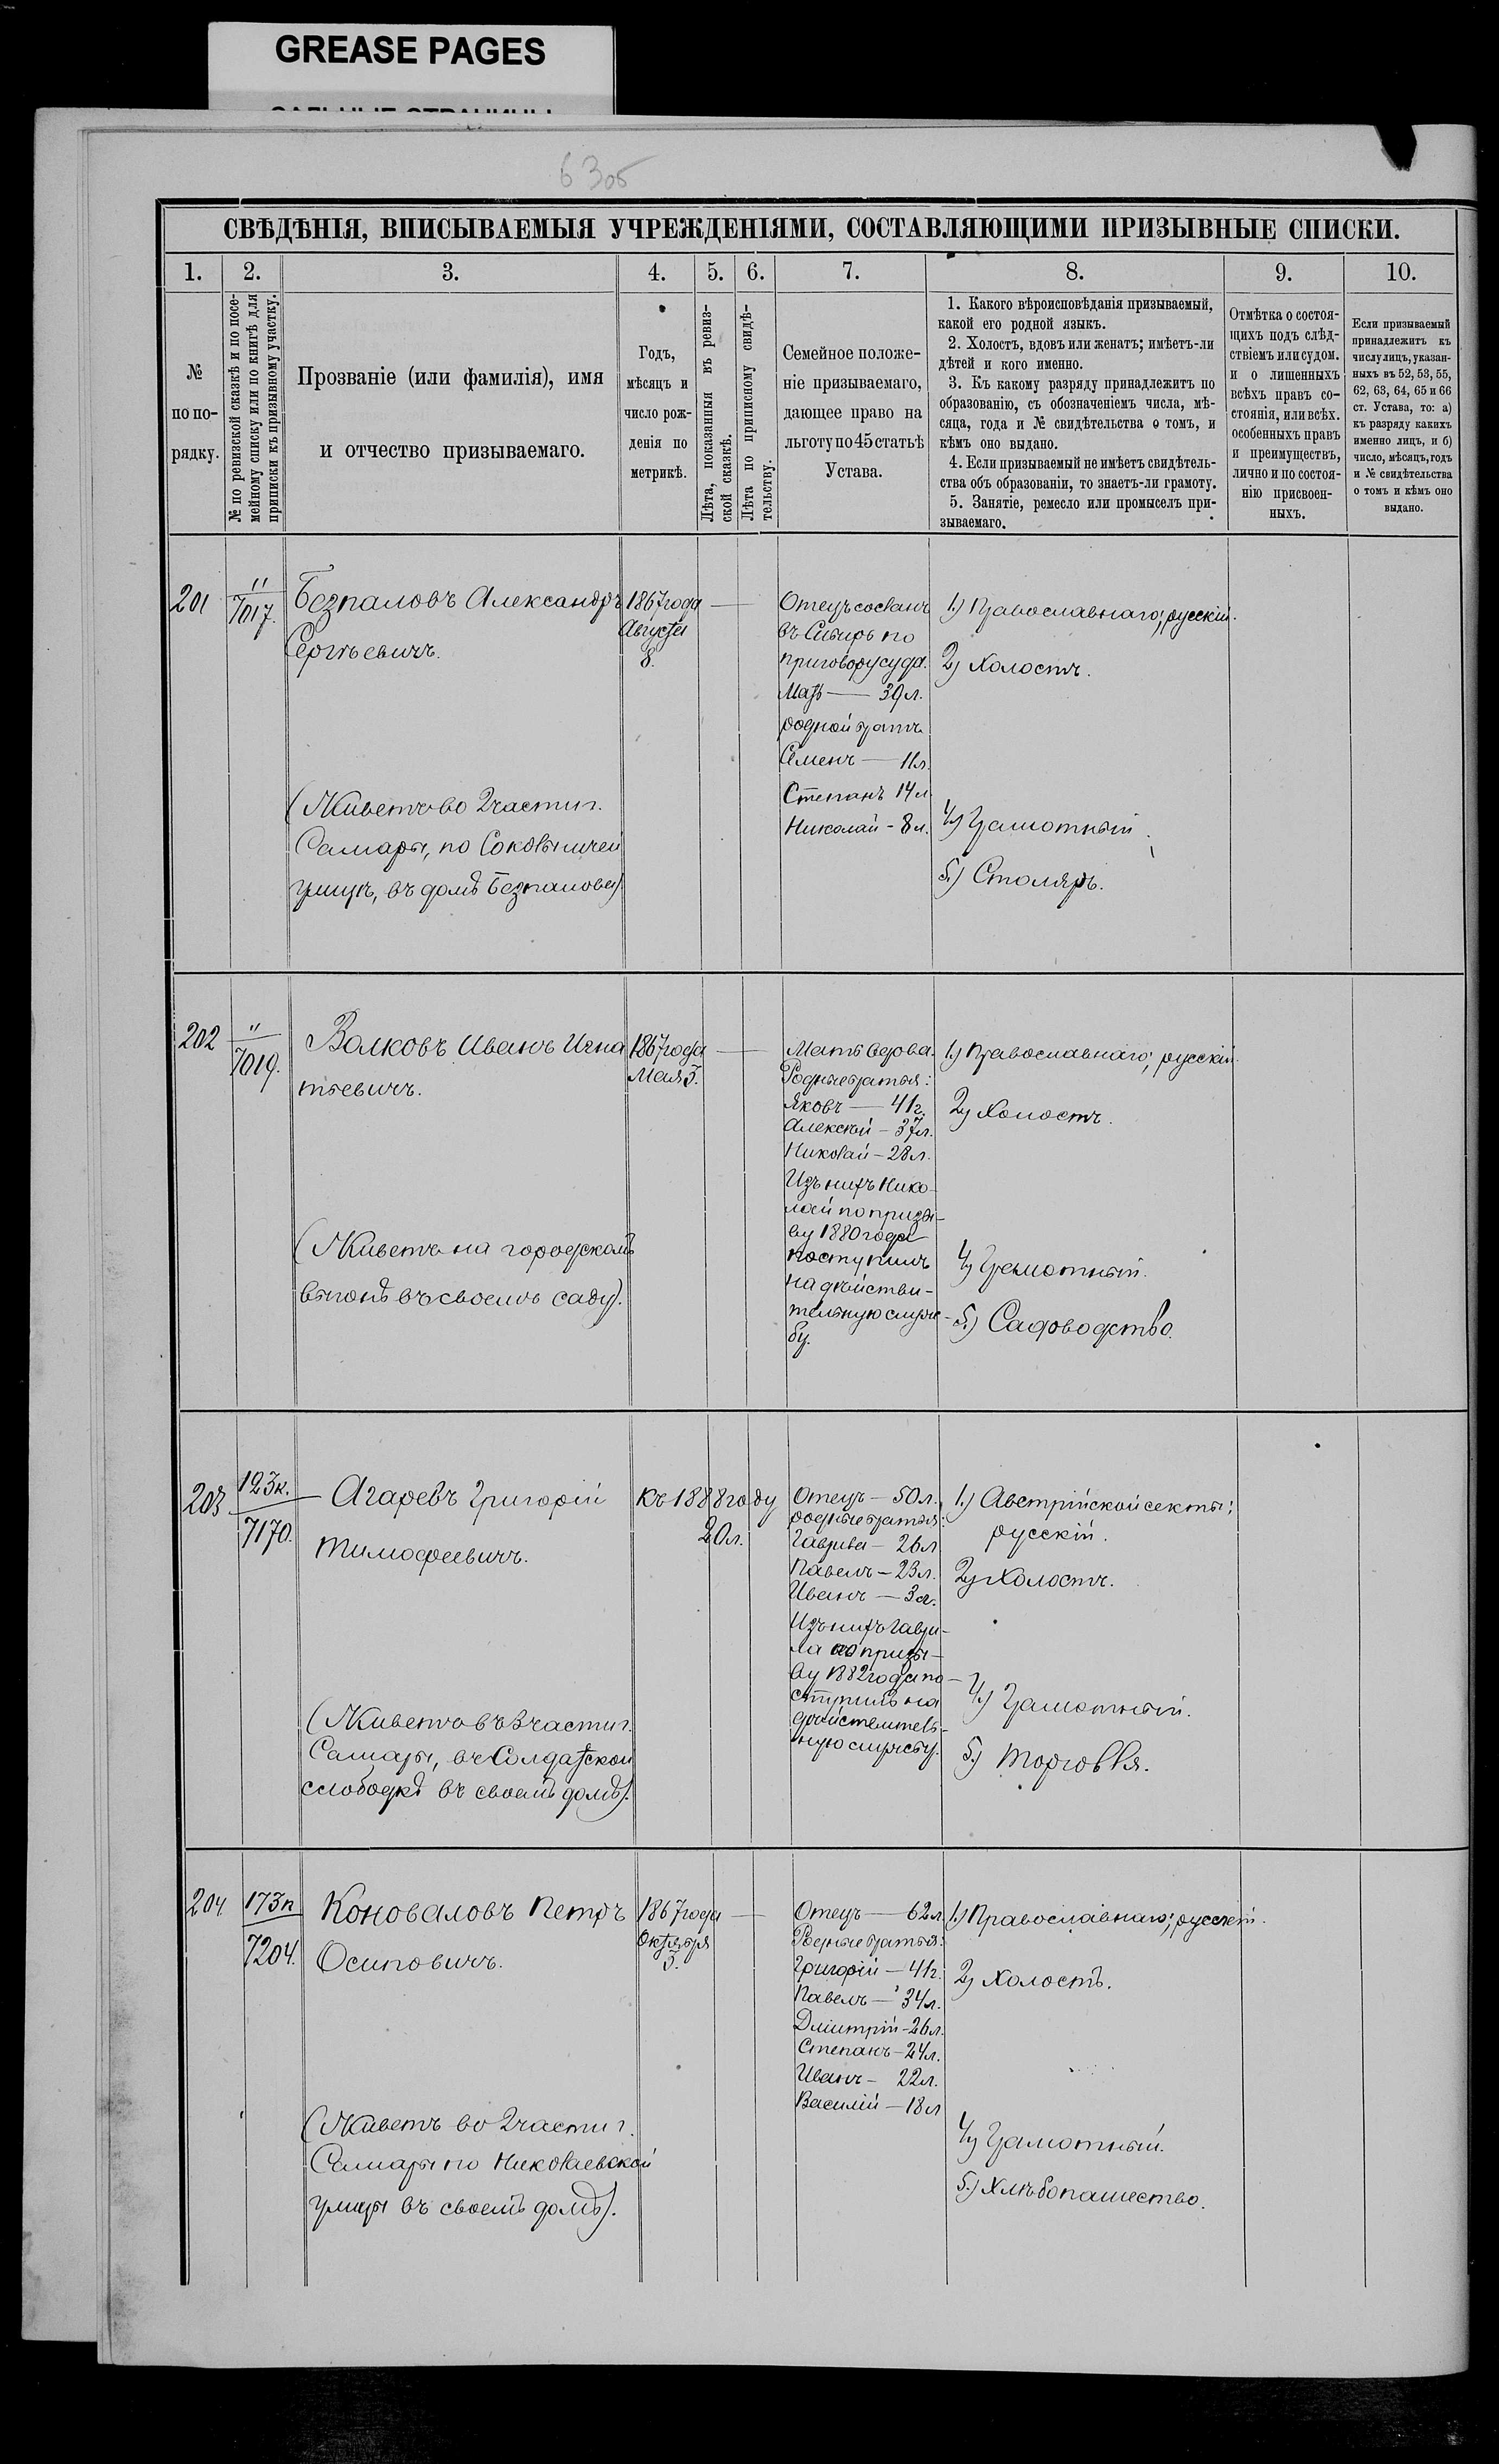 GREASE PAGES
САЛЬНЫЕ СТРАНИЦЫ
63об
СВѢДѢНІЯ, ВПИСЫВАЕМЫЯ УЧРЕЖДЕНІЯМИ, СОСТАВЛЯЮЩИМИ ПРИЗЫВНЫЕ СПИСКИ.
1.
2.
3.
4.
5.
6.
7.
8.
9.
10.
№
по по-
рядку.
№ по ревизской сказкѣ и по посе-
мейному списку или по книгѣ для
приписки къ призывному участку.
Прозваніе (или фамилія), имя
и отчество призываемаго.
Годъ,
мѣсяцъ и
число рож-
денія по
метрикѣ.
Лѣта, показанныя въ ревиз-
ской сказкѣ.
Лѣта по приписному свидѣ-
тельству.
Семейное положе-
ніе призываемаго,
дающее право на
льготу по 45 статьѣ
Устава.
1. Какого вѣроисповѣданія призываемый,
какой его родной языкъ.
2. Холостъ, вдовъ или женатъ; имѣетъ-ли
дѣтей и кого именно.
3. Къ какому разряду принадлежитъ по
образованію, съ обозначеніемъ числа, мѣ-
сяца, года и № свидѣтельства о томъ, и
кѣмъ оно выдано.
4. Если призываемый не имѣетъ свидѣтель-
ства объ образованіи, то знаетъ-ли грамоту.
5. Занятіе, ремесло или промыселъ при-
зываемаго.
Отмѣтка о состоя-
щихъ подъ слѣд-
ствіемъ или судом.
и о лишенныхъ
всѣхъ правъ со-
стоянія, или всѣх.
особенныхъ правъ
и преимуществъ,
лично и по состоя-
нію присвоен-
ныхъ.
Если призываемый
принадлежитъ къ
числу лицъ, указан-
ныхъ въ 52, 53, 55,
62, 63, 64, 65 и 66
ст. Устава, то: а)
къ разряду какихъ
именно лицъ, и б)
число, мѣсяцъ, годъ
и № свидѣтельства
о томъ и кѣмъ оно
выдано.
201
"
7017.
Безпаловъ Александръ
Сергѣевичъ.
(Живетъ во 2 части г.
Самары, по Соколничей
улицѣ, въ домѣ Безпалова).
1867 года
Августа
8.
Отецъ сосланъ
въ Сибирь по
приговору суда.
Мать — 39 л.
родной братъ
Семенъ — 11 л.
Степанъ 14 л
Николай - 8 л.
1.) Православнаго; русскій.
2) Холостъ.
4.) Грамотный.
5.) Столяръ.
202
"
7019.
Волковъ Иванъ Игна
тьевичъ.
(Живетъ на городскомъ
выгонѣ въ своемъ саду).
1867 года
Мая 3.
Мать вдова.
Родные братья:
Яковъ — 41 г.
Алексѣй - 37 л.
Николай - 28 л.
Изъ нихъ Нико-
лай по призы-
ву 1880 года
поступилъ
на дѣйстви-
тельную служ-
бу.
1.) Православнаго; русскій.
2) Холостъ.
4) Грамотный.
5.) Садоводство.
203
123 к.
7170.
Агаревъ Григорій
Тимофеевичъ.
(Живетъ въ 3 части г.
Самары, въ Солдатской
слободкѣ въ своемъ домѣ).
Къ 1888 году
20 л.
Отецъ — 50 л.
родные братья:
Гаврила — 26 л
Павелъ — 23 л.
Иванъ — 3 г.
Изъ нихъ Гаври-
ла по призы-
ву 1882 года по-
ступилъ на
дѣйствитель-
ную службу.
1.) Австрійской секты;
русскій.
2) Холостъ.
4) Грамотный.
5.) Торговля.
204
173 п
7204.
Коноваловъ Петръ
Осиповичъ.
(Живетъ во 2 части г.
Самары по Николаевской
улицы въ своемъ домѣ).
1867 года
Октября
3.
Отецъ — 62 л
Родные братья:
Григорій — 41 г.
Павелъ — 34 л.
Дмитрій - 26 л.
Степанъ - 24 л.
Иванъ - 22 л.
Василій — 18 л
1.) Православнаго; русскій.
2) Холостъ.
4) Грамотный.
5.) Хлѣбопашество.